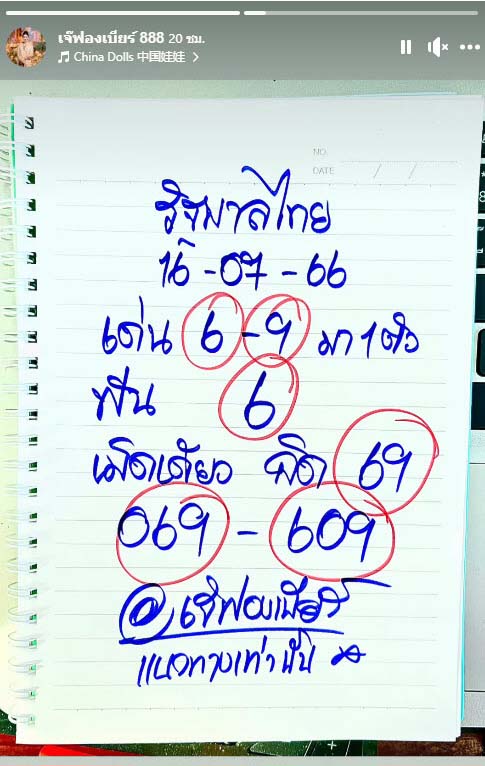 เจ๊ฟองเบียร์ 888 20 ชม.
China Dolls 中国娃娃 >
NO.
DATE / /
รัฐบาลไทย
16-07-66
เด่น 6-9 มา 1 ตัว
ฟัน 6
เม็ดเดียว ติด 69
069 - 609
@เจ๊ฟองเบียร์
แนวทางเท่านั้น